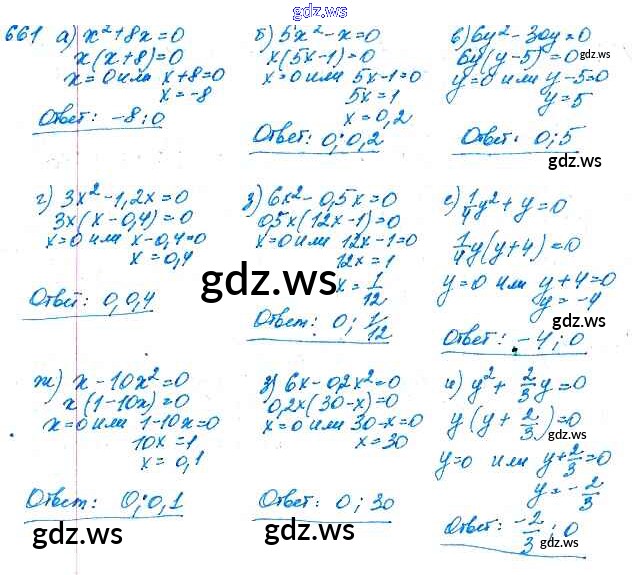 gdz.ws
661 а) x²+8x=0
x(x+8)=0
x=0 или x+8=0
x=-8
Ответ: -8; 0
б) 5x²-x=0
x(5x-1)=0
x=0 или 5x-1=0
5x=1
x=0,2
Ответ: 0; 0,2
в) 6y²-30y=0
6y(y-5)=0
y=0 или y-5=0
y=5
Ответ: 0; 5
gdz.ws
gdz.ws
gdz.ws
г) 3x²-1,2x=0
3x(x-0,4)=0
x=0 или x-0,4=0
x=0,4
Ответ: 0, 0,4
д) 6x²-0,5x=0
0,5x(12x-1)=0
x=0 или 12x-1=0
12x=1
x=1/12
Ответ: 0; 1/12
е) 1/4y²+y=0
1/4y(y+4)=0
y=0 или y+4=0
y=-4
Ответ: -4; 0
gdz.ws
gdz.ws
ж) x-10x²=0
x(1-10x)=0
x=0 или 1-10x=0
10x=1
x=0,1
Ответ: 0; 0,1
з) 6x-0,2x²=0
0,2x(30-x)=0
x=0 или 30-x=0
x=30
Ответ: 0; 30
и) y²+2/3y=0
y(y+2/3)=0
y=0 или y+2/3=0
y=-2/3
Ответ: -2/3; 0
gdz.ws
gdz.ws
gdz.ws
gdz.ws